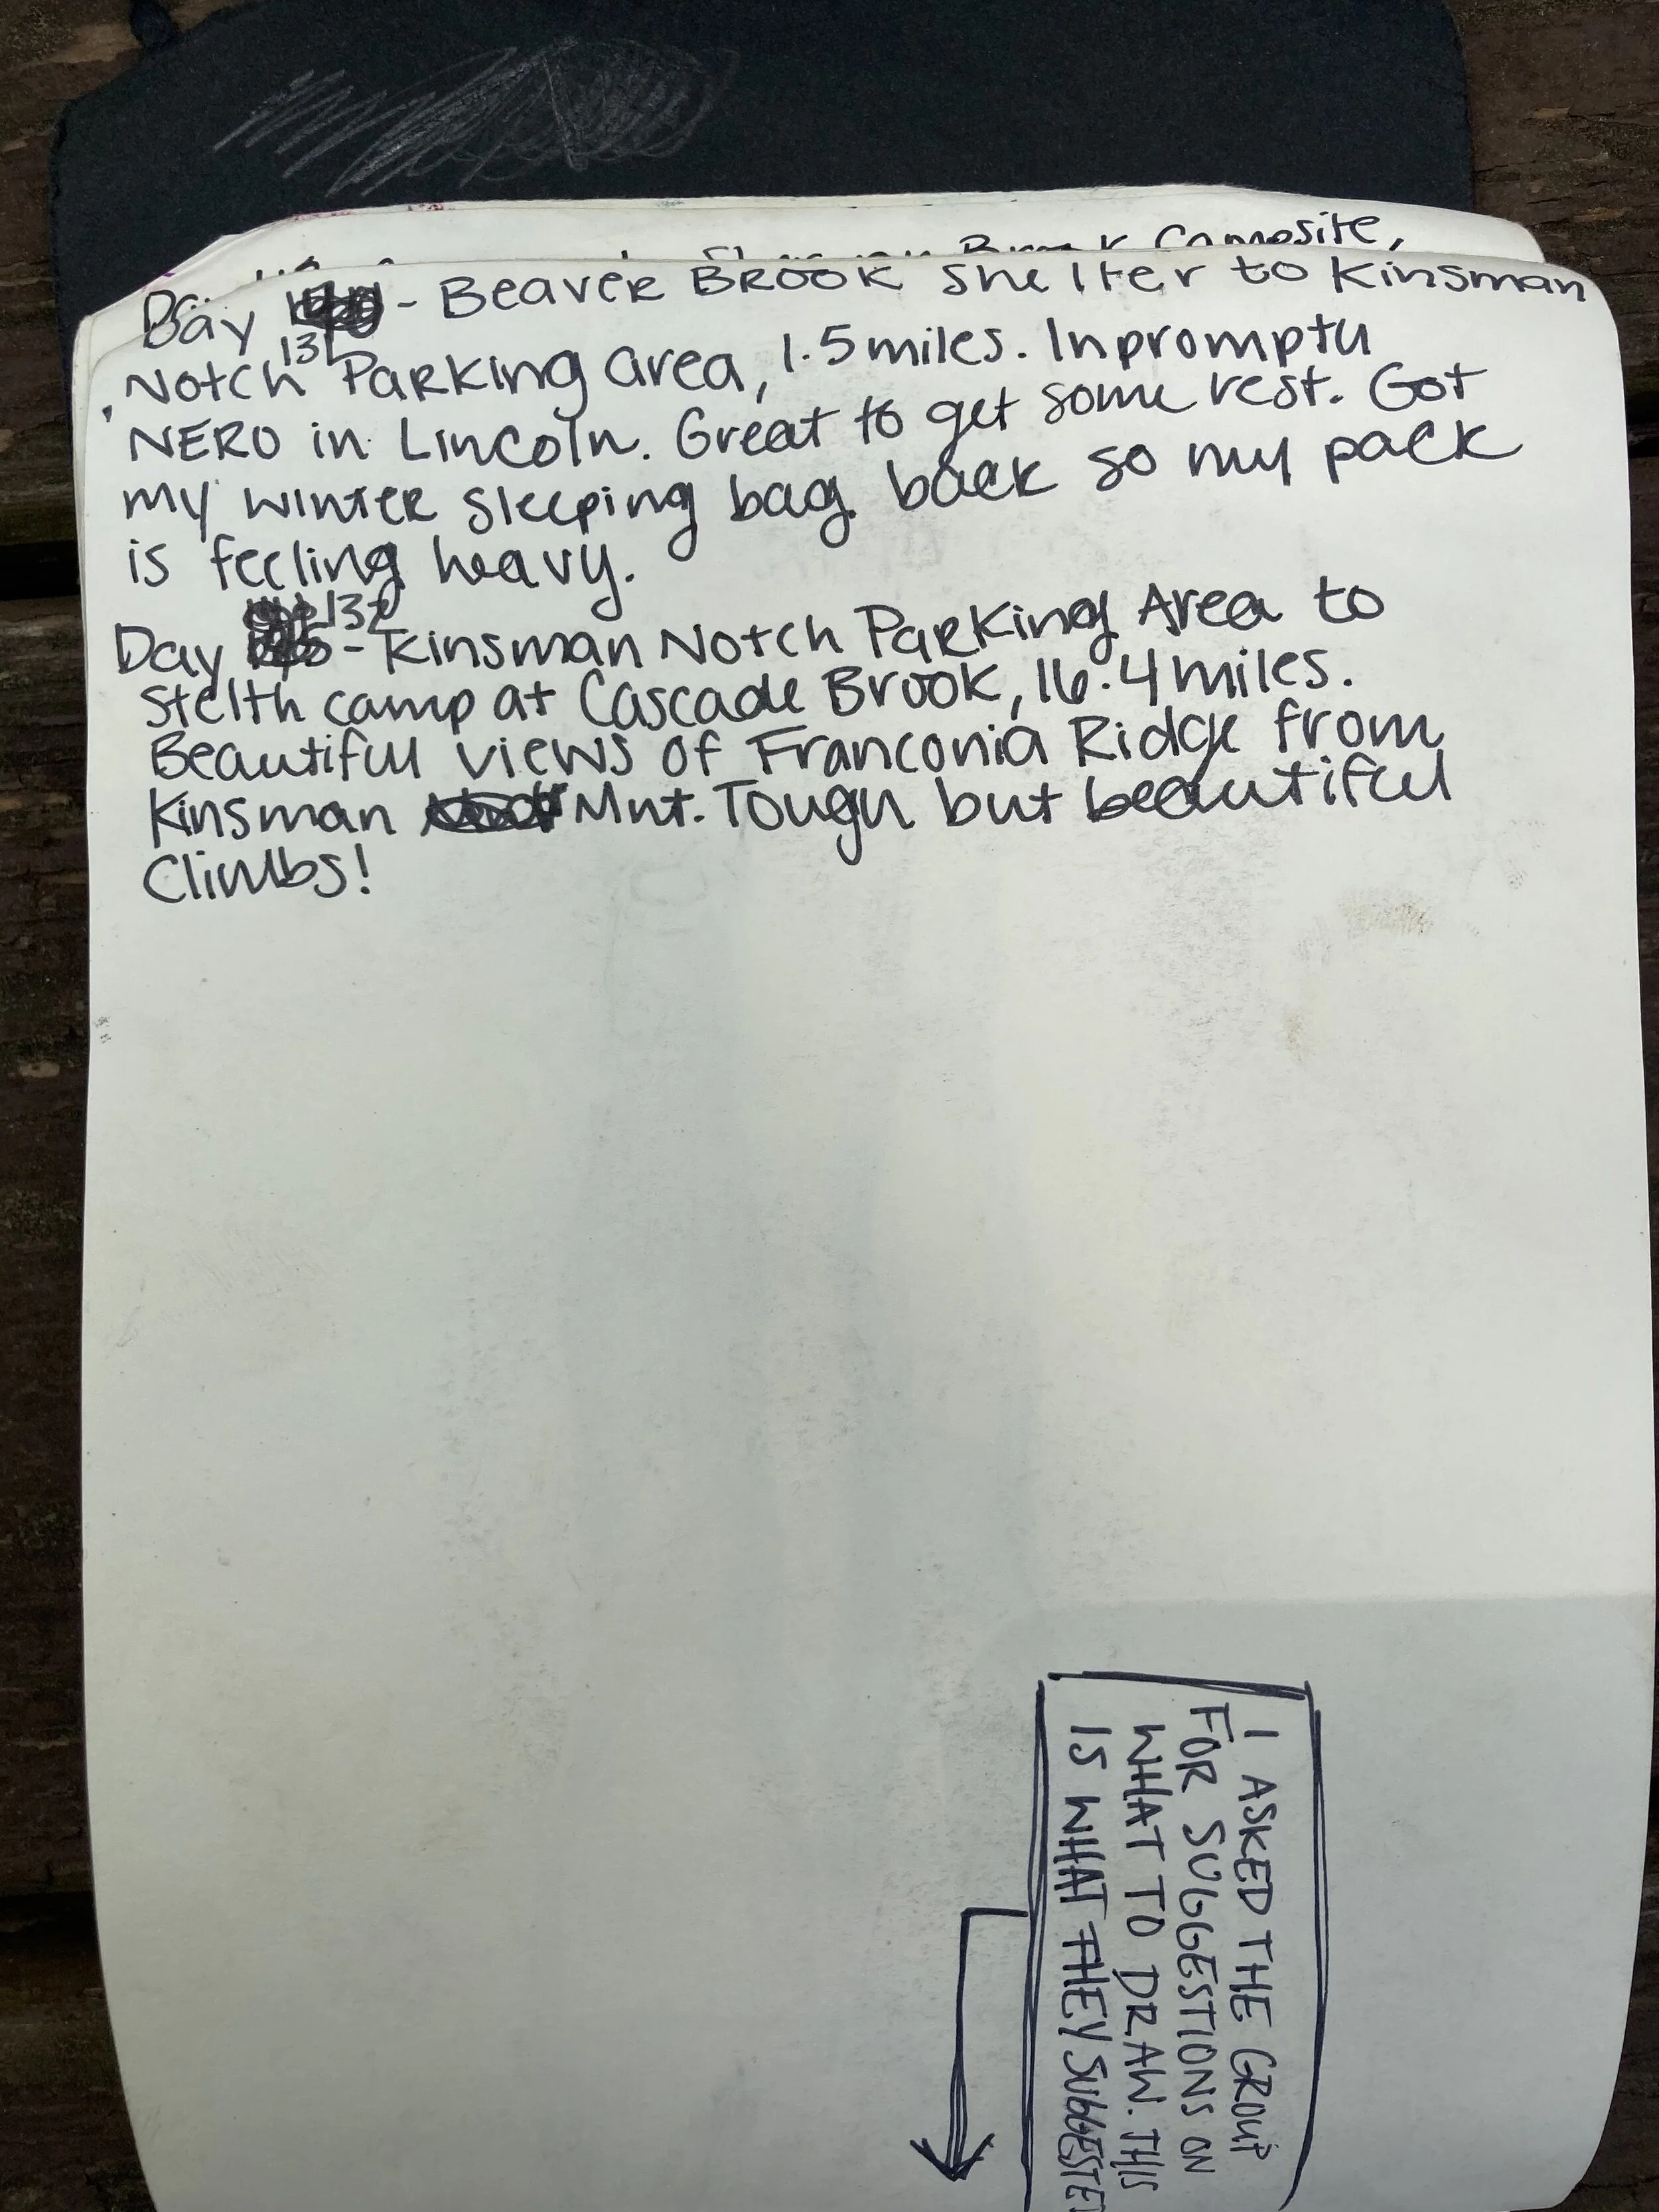 Brook Campsite,
Day - Beaver Brook Shelter to Kinsman
131
Notch Parking area, 1.5 miles. Inpromptu
NERO in Lincoln. Great to get some rest. Got
my winter sleeping bag back so my pack
is feeling heavy.
132
Day - Kinsman Notch Parking Area to
Stelth camp at Cascade Brook, 16.4 miles.
Beautiful views of Franconia Ridge from
Kinsman Mnt. Tough but beautiful
Climbs!
I ASKED THE GROUP
FOR SUGGESTIONS ON
WHAT TO DRAW. THIS
IS WHAT THEY SUGGESTED